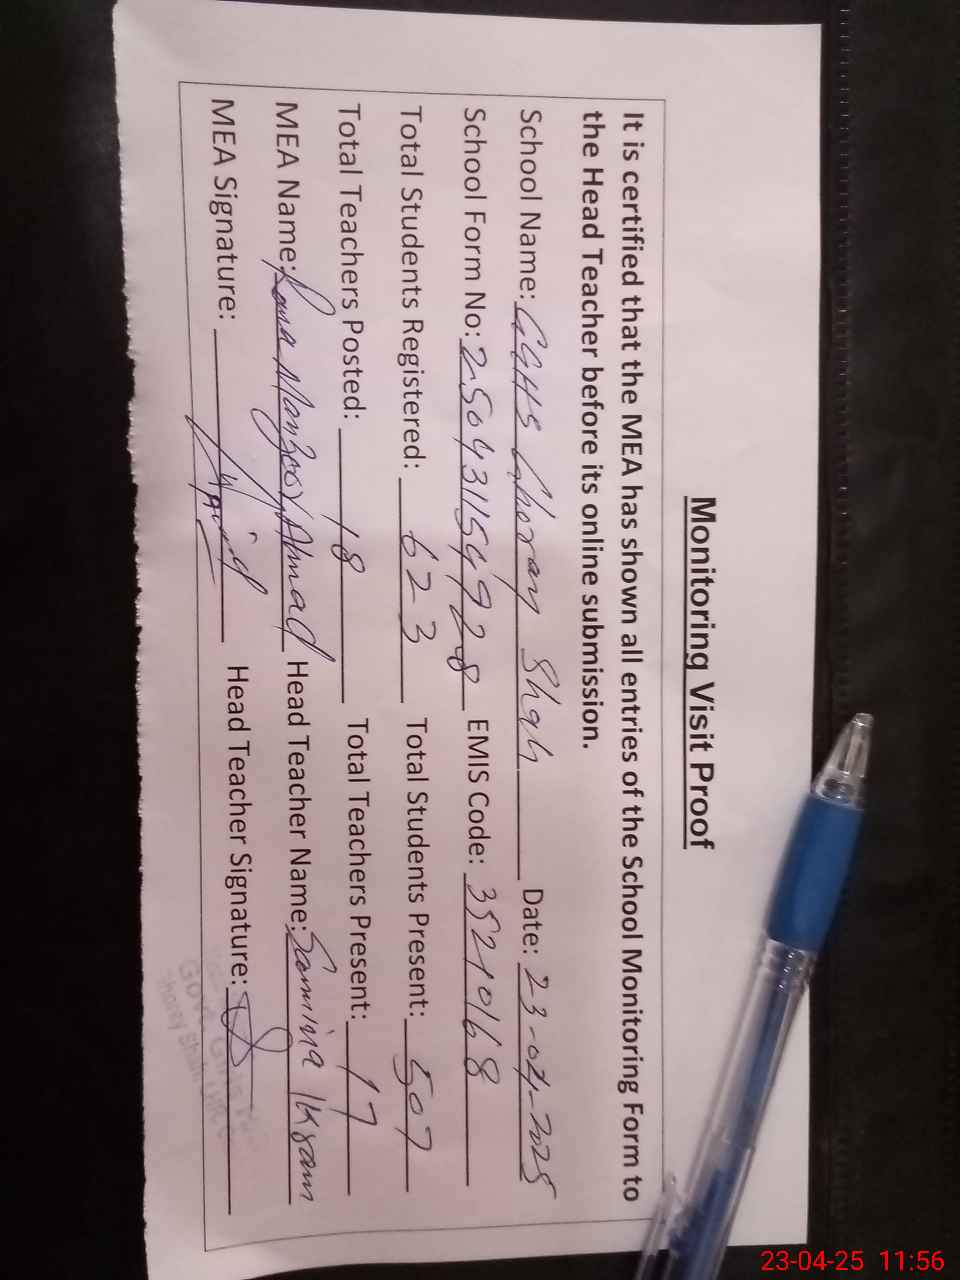 Monitoring Visit Proof
It is certified that the MEA has shown all entries of the School Monitoring Form to
the Head Teacher before its online submission.
School Name: GGHS Ghoray Shah Date: 23-04-2025
School Form No: 250431154928 EMIS Code: 35210168
Total Students Registered: 623 Total Students Present: 507
Total Teachers Posted: 18 Total Teachers Present: 17
MEA Name: Rana Manzoor Ahmad Head Teacher Name: Samina Ikram
MEA Signature: Head Teacher Signature:
Govt. Girls
Shah
23-04-25 11:56